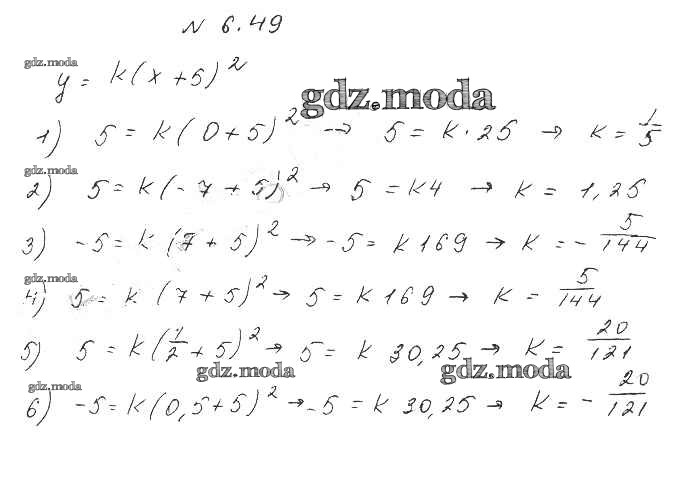 N 6.49
gdz.moda
y = k(x+5)²
gdz.moda
1) 5 = k(0+5)² → 5 = k·25 → k = 1/5
gdz.moda
2) 5 = k(-7+5)² → 5 = k4 → k = 1,25
3) -5 = k(7+5)² → -5 = k169 → k = - 5/144
gdz.moda
4) 5 = k (7+5)² → 5 = k169 → k = 5/144
5) 5 = k(1/2+5)² → 5 = k 30,25 → k = 20/121
gdz.moda gdz.moda
gdz.moda
6) -5 = k(0,5+5)² → -5 = k 30,25 → k = - 20/121